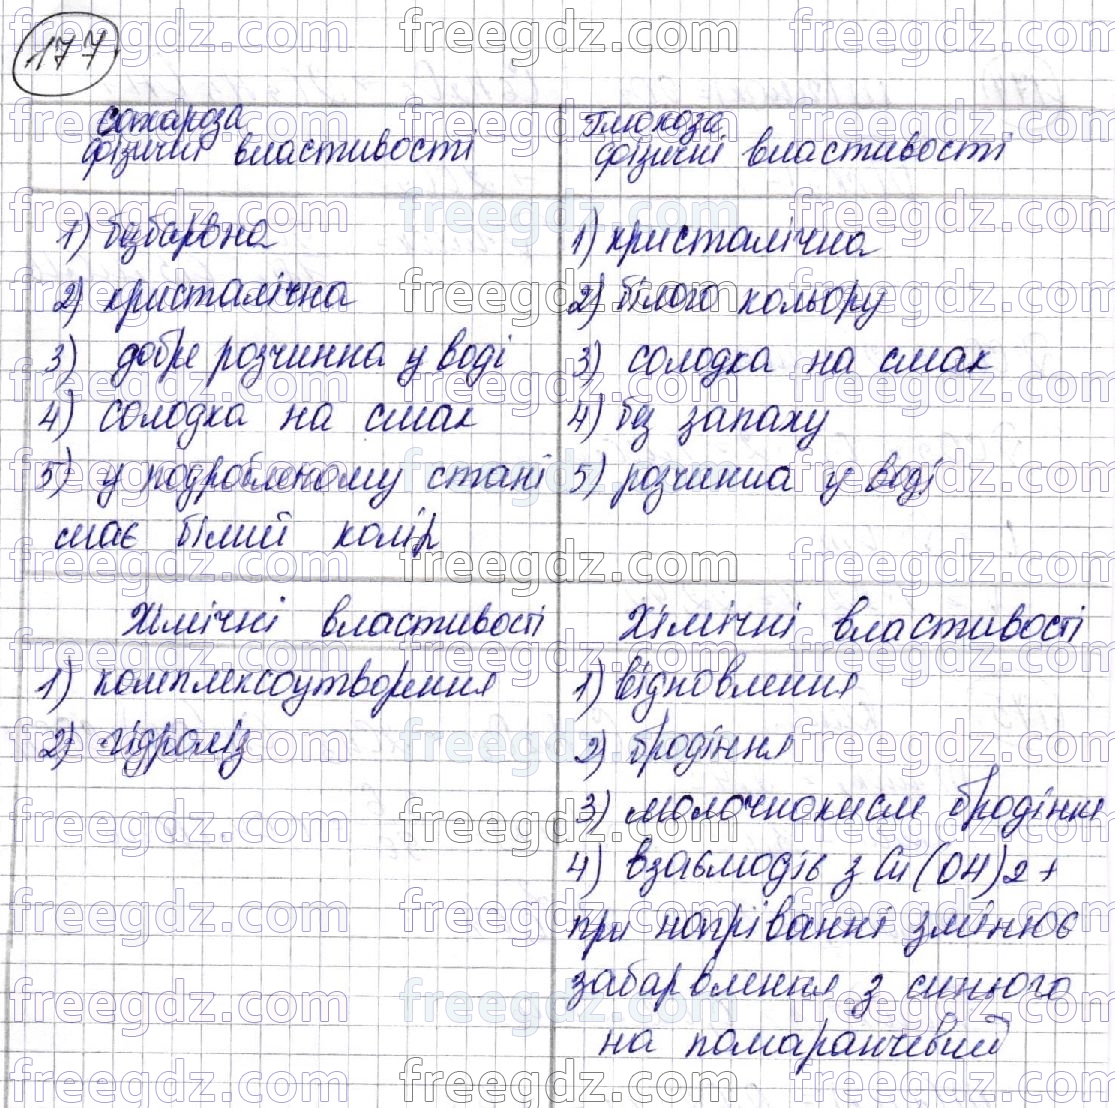 177
сахароза
фізичні властивості
Глюкоза
фізичні властивості
1) безбарвна
2) кристалічна
3) добре розчинна у воді
4) солодка на смак
5) у подробленому стані
має білий колір
1) кристалічна
2) білого кольору
3) солодка на смак
4) без запаху
5) розчинна у воді
Хімічні властивості
1) комплексоутворення
2) гідроліз
Хімічні властивості
1) відновлення
2) бродіння
3) молочнокисле бродіння
4) взаємодіє з Cu(OH)2 +
при нагріванні змінює
забарвлення з синього
на помаранчевий
freegdz.com